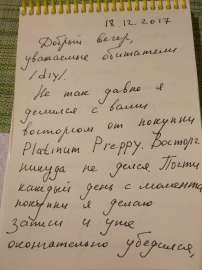 18.12.2017
Добрый вечер,
уважаемые обитатели
/diy/.
Не так давно я
делился с вами
восторгом от покупки
Platinum Preppy. Восторг
никуда не делся. Почти
каждый день с момента
покупки я делаю
записи и уже
окончательно убедился,